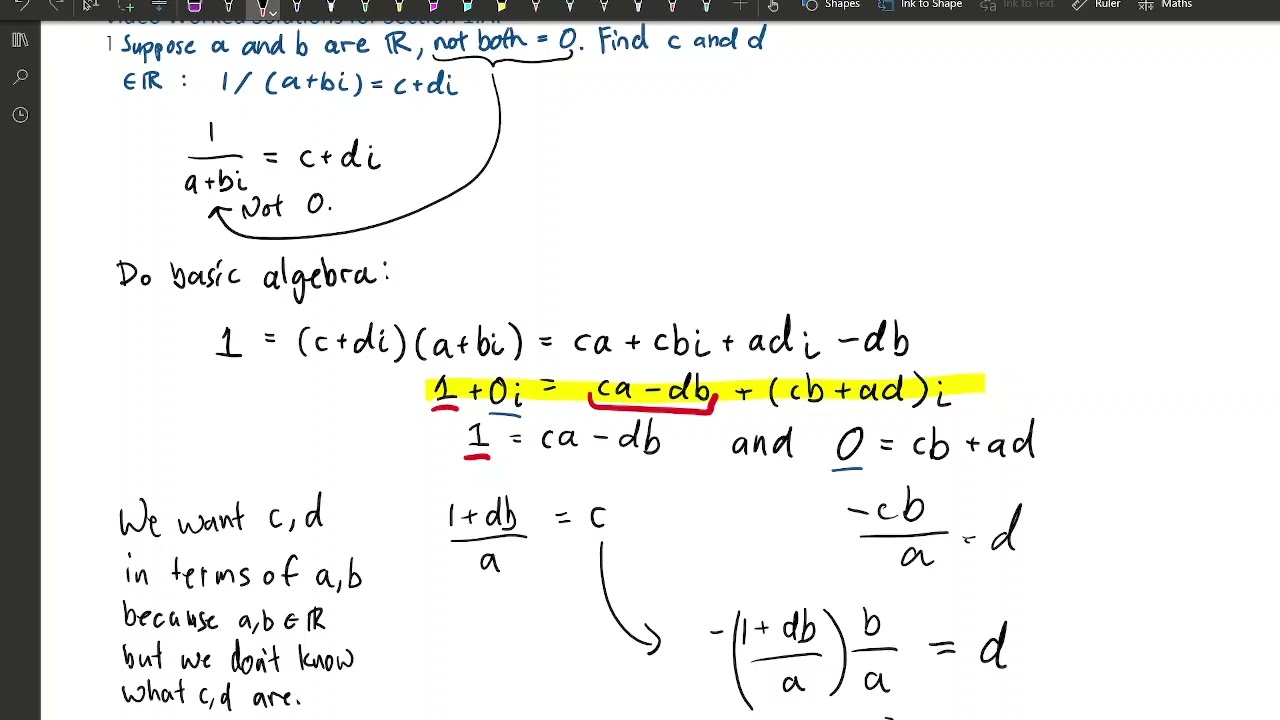 Shapes Ink to Shape Ink to Text Ruler Maths
Video Worked Solutions for Section 1.A.
1 Suppose a and b are ℝ, not both = 0. Find c and d
∈ℝ : 1/(a+bi) = c+di
1/(a+bi) = c+di
Not 0.
Do basic algebra:
1 = (c+di)(a+bi) = ca + cbi + adi - db
1 + 0i = ca - db + (cb + ad)i
1 = ca - db and 0 = cb + ad
We want c, d
in terms of a, b
because a, b ∈ ℝ
but we don't know
what c, d are.
(1+db)/a = c
-cb/a = d
-((1+db)/a) b/a = d